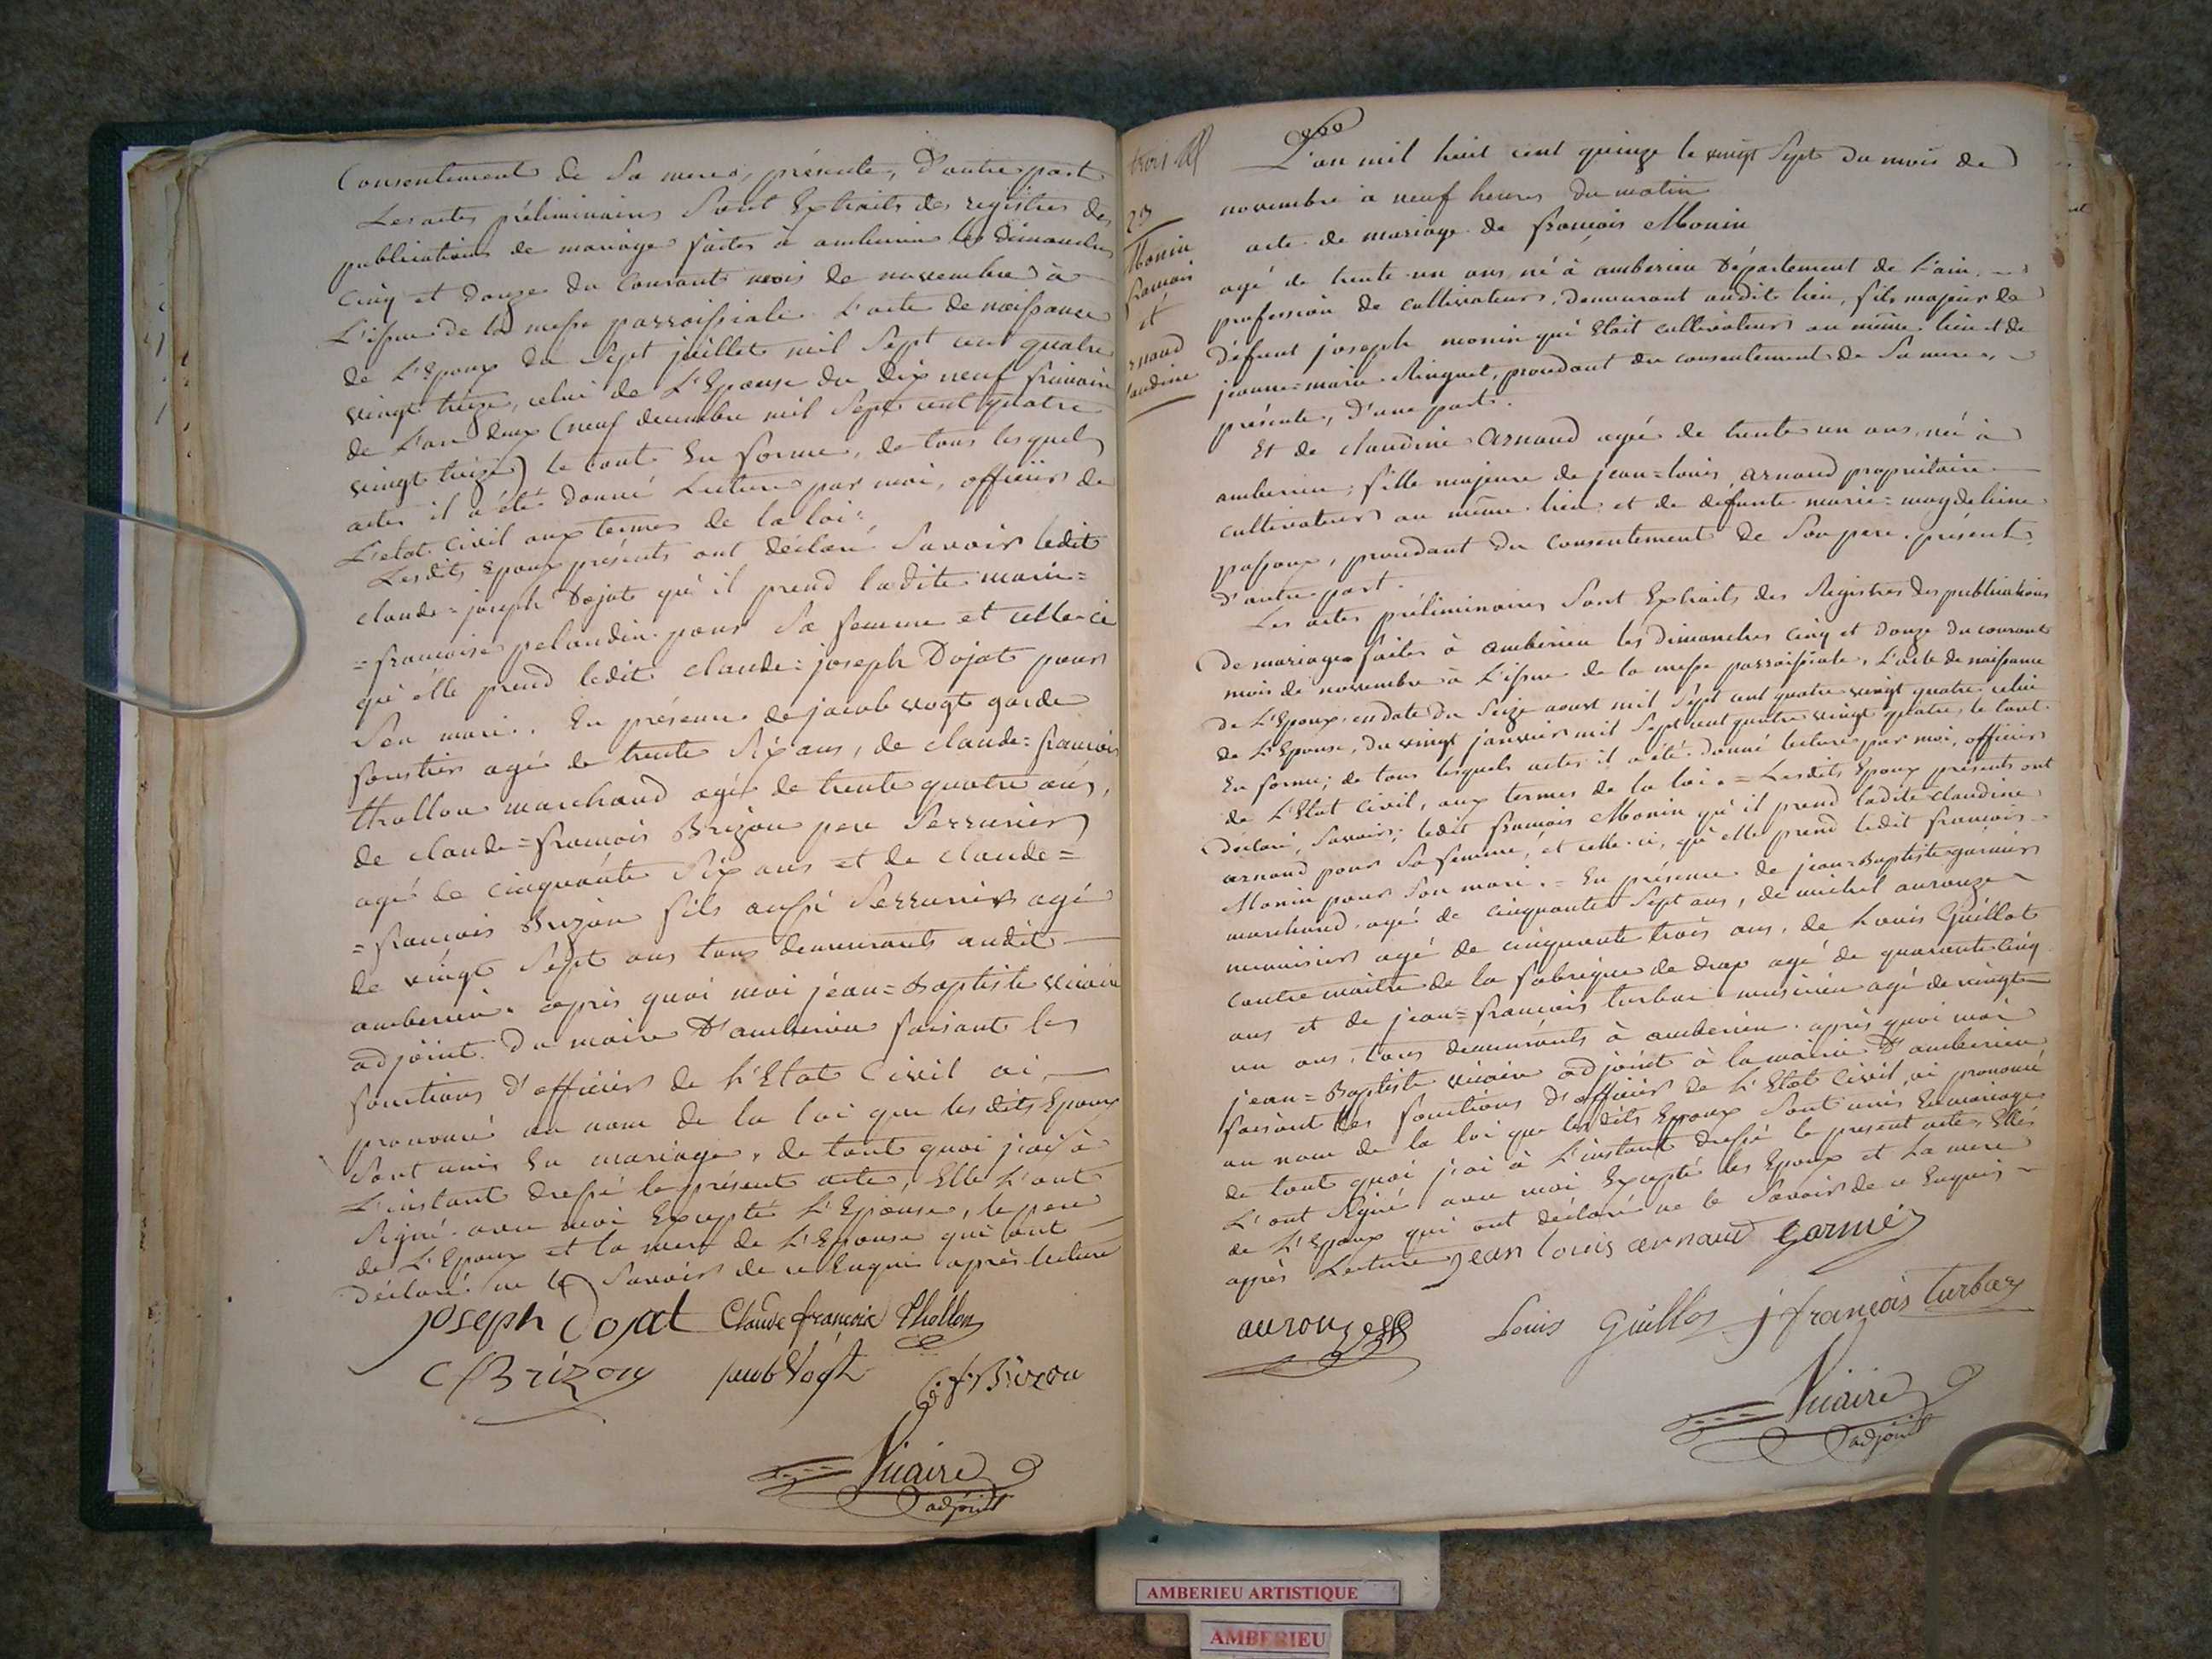 Consentement de Sa mere, présente, D'autre part
Les actes préliminaires Sont Extraits des registres des
publications de mariage faites à amberieu les Dimanches
Cinq et Douze du Courant mois de novembre à
L'issue de la messe parroissiale. L'acte de naissance
de L'Epoux du Sept juillet mil Sept cent quatre
vingt treize, celui de L'Epouse du Dix neuf frimaire
de L'an deux (neuf decembre mil Sept cent quatre
vingt treize) le tout En forme, de tous lesquels
actes il a été donné Lecture par moi, officier de
L'etat Civil aux termes de la loi.
Lesdits Epoux présents ont déclaré Savoir ledit
claude=joseph Dojat qu'il prend ladite marie=
=francoise pelaudin pour Sa femme et celle-ci
qu'elle prend ledit claude=joseph Dojat pour
Son mari. En présence de jacob vogt garde
forestier agé de trente Six ans, de claude=francois
thollon marchand agé de trente quatre ans,
de claude=francois Brizon pere Serrurier
agé de cinquante Six ans et de claude=
=francois Brizon fils aussi Serrurier agé
de vingt Sept ans tous demeurants audit
amberieu. après quoi moi jean=Baptiste vicaire
adjoint du maire D'amberieu faisant les
fonctions d'officier de L'Etat Civil ai
prononcé au nom de la loi que les dits Epoux
Sont unis En mariage, de tout quoi j'ai à
L'instant dressé le présent acte, Elle L'ont
Signé avec moi Excepté L'Epouse, le pere
de L'Epoux et la mere de L'Epouse qui ont
déclaré ne le Savoir de ce Enquis après lecture
joseph Dojat Claude françois Thollon
Cf Brizon jacob Vogt C. f. Brizon
Vicaire
adjoint
23
Monin
francois
et
arnaud
claudine
L'an mil huit cent quinze le vingt Sept du mois de
novembre à neuf heures du matin
acte de mariage de françois Monin
agé de trente un ans né à amberieu Département de L'ain,
profession de cultivateur, demeurant audit lieu, fils majeur de
défunt joseph monin qui Etait cultivateur au même lieu et de
jeanne=marie Ringuet, procedant du consentement de Sa mere,
présente, D'une part.
Et de claudine Arnaud agée de trente un ans, née à
amberieu, fille majeure de jean=louis arnaud propriétaire
cultivateur au même lieu et de defunte marie=magdeleine
passoux, procedant du consentement de Son pere présent
d'autre part.
Les actes préliminaires Sont Extraits des Registres des publications
de mariage faites à amberieu les Dimanches cinq et douze du courant
mois de novembre à L'issue de la messe parroissiale, L'acte de naissance
de L'Epoux en date du Seize aoust mil Sept cent quatre vingt quatre celui
de L'Epouse, du vingt janvier mil Sept cent quatre vingt quatre, le tout
En forme; de tous lesquels actes il a été donné lecture par moi, officier
de L'Etat Civil, aux termes de la loi. = Lesdits Epoux présents ont
déclaré, Savoir; ledit francois Monin qu'il prend ladite Claudine
arnaud pour Sa femme, et celle-ci, qu'elle prend ledit francois
Monin pour Son mari. = En présence de jean=Baptiste garnier
marchand agé de cinquante Sept ans, de michel aurouze
menuisier agé de cinquante trois ans, de Louis Guillot
contre maitre de la fabrique de drap agé de quarante cinq
ans et de jean=francois turbar musicien agé de vingt
un ans, tous demeurants à amberieu. après quoi moi
jean=Baptiste vicaire adjoint à la mairie D'amberieu
faisant les fonctions d'officier de L'Etat Civil, ai prononcé
au nom de la loi que les dits Epoux Sont unis En mariage
de tout quoi j'ai à L'instant dressé le present acte, Elles
L'ont Signé avec moi Excepté les Epoux et La mere
de L'Epoux qui ont déclaré ne le Savoir de ce Enquis
après Lecture jean louis arnaud Garnier
aurouze Louis Guillot j françois turbar
Vicaire
adjoint
AMBERIEU ARTISTIQUE
AMBERIEU